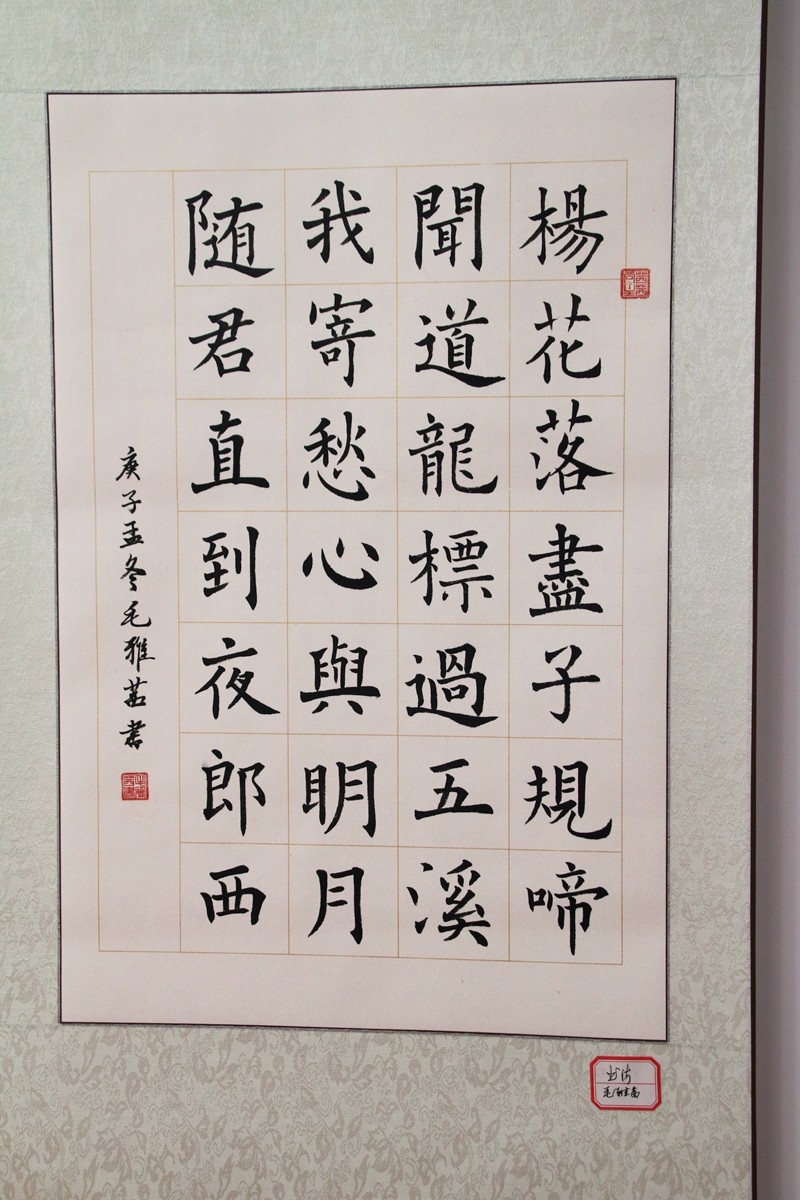 楊花落盡子規啼
聞道龍標過五溪
我寄愁心與明月
随君直到夜郎西
庚子孟冬毛雅茜書
书法